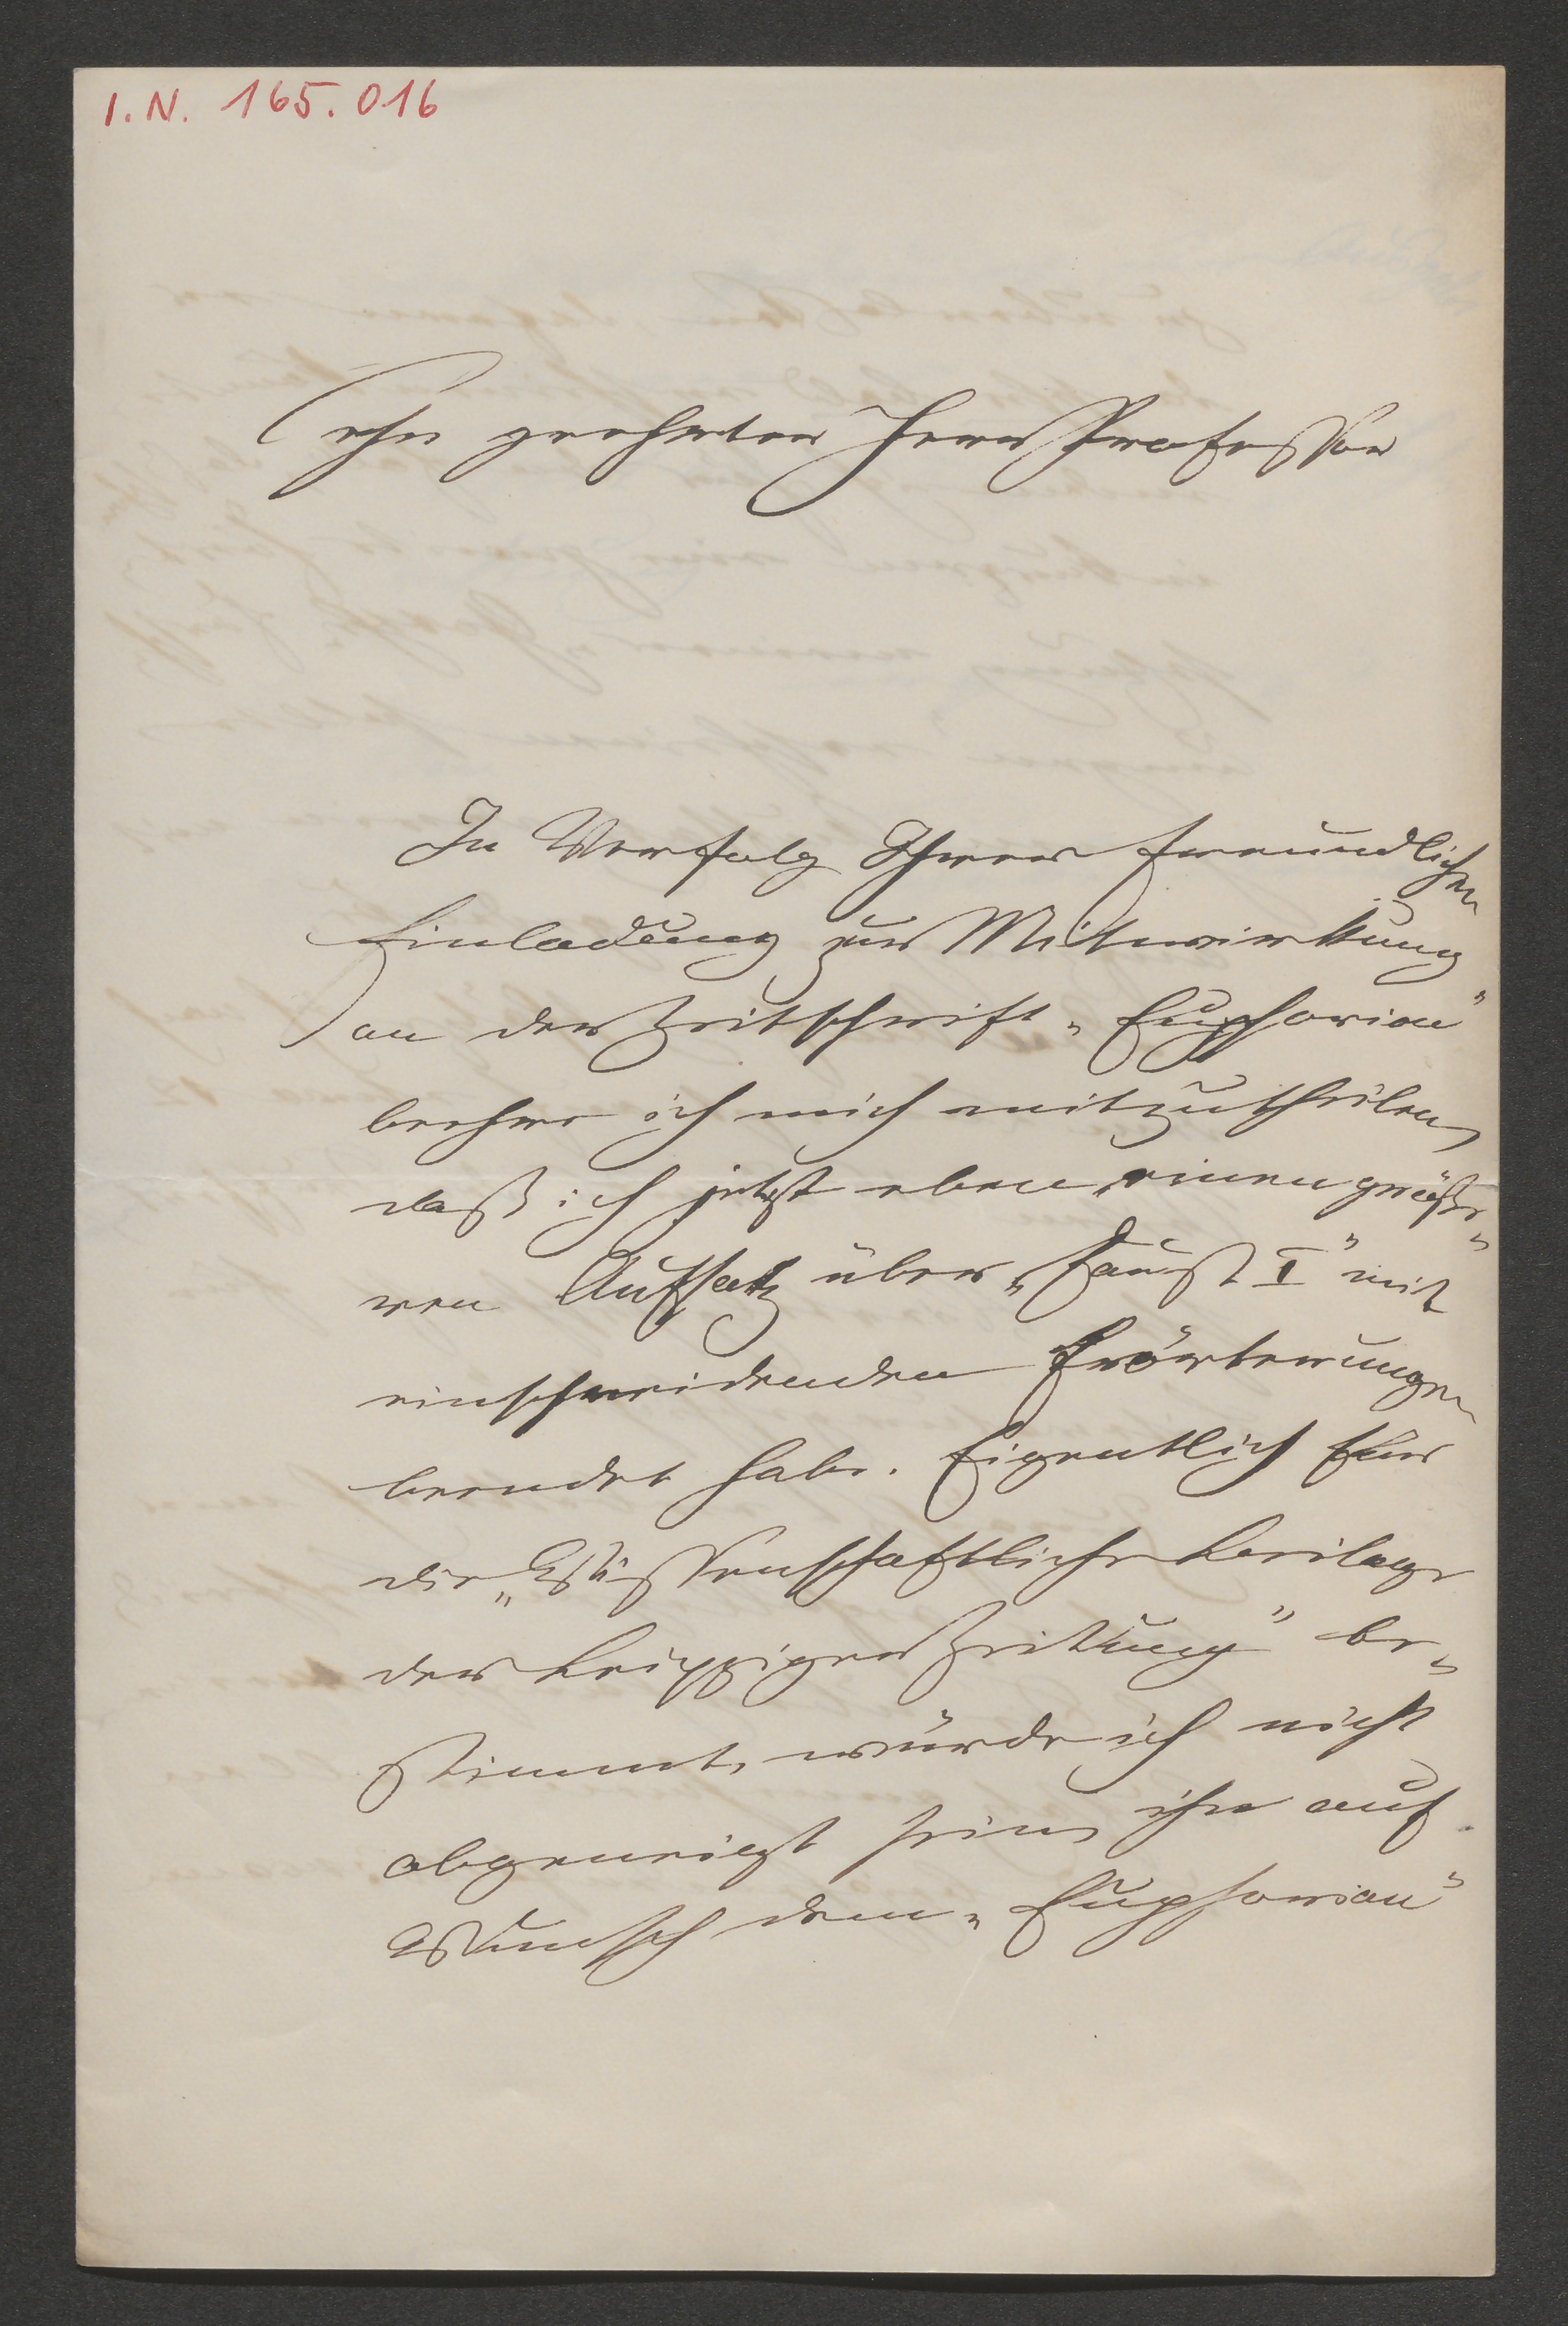 I.N. 165.016
Sehr geehrter Herr Professor
In Verfolg Ihrer freundlichen
Einladung zur Mitwirkung
an der Zeitschrift „Euphorion“
beehre ich mich mitzutheilen,
daß ich jetzt eben einen größe-
ren Aufsatz über „Faust I“ mit
einschneidenden Erörterungen
beendet habe. Eigentlich für
die „Wissenschaftliche Beilage
der Leipziger Zeitung“ be-
stimmt, würde ich nicht
abgeneigt sein, ihn auf
Wunsch dem „Euphorion“